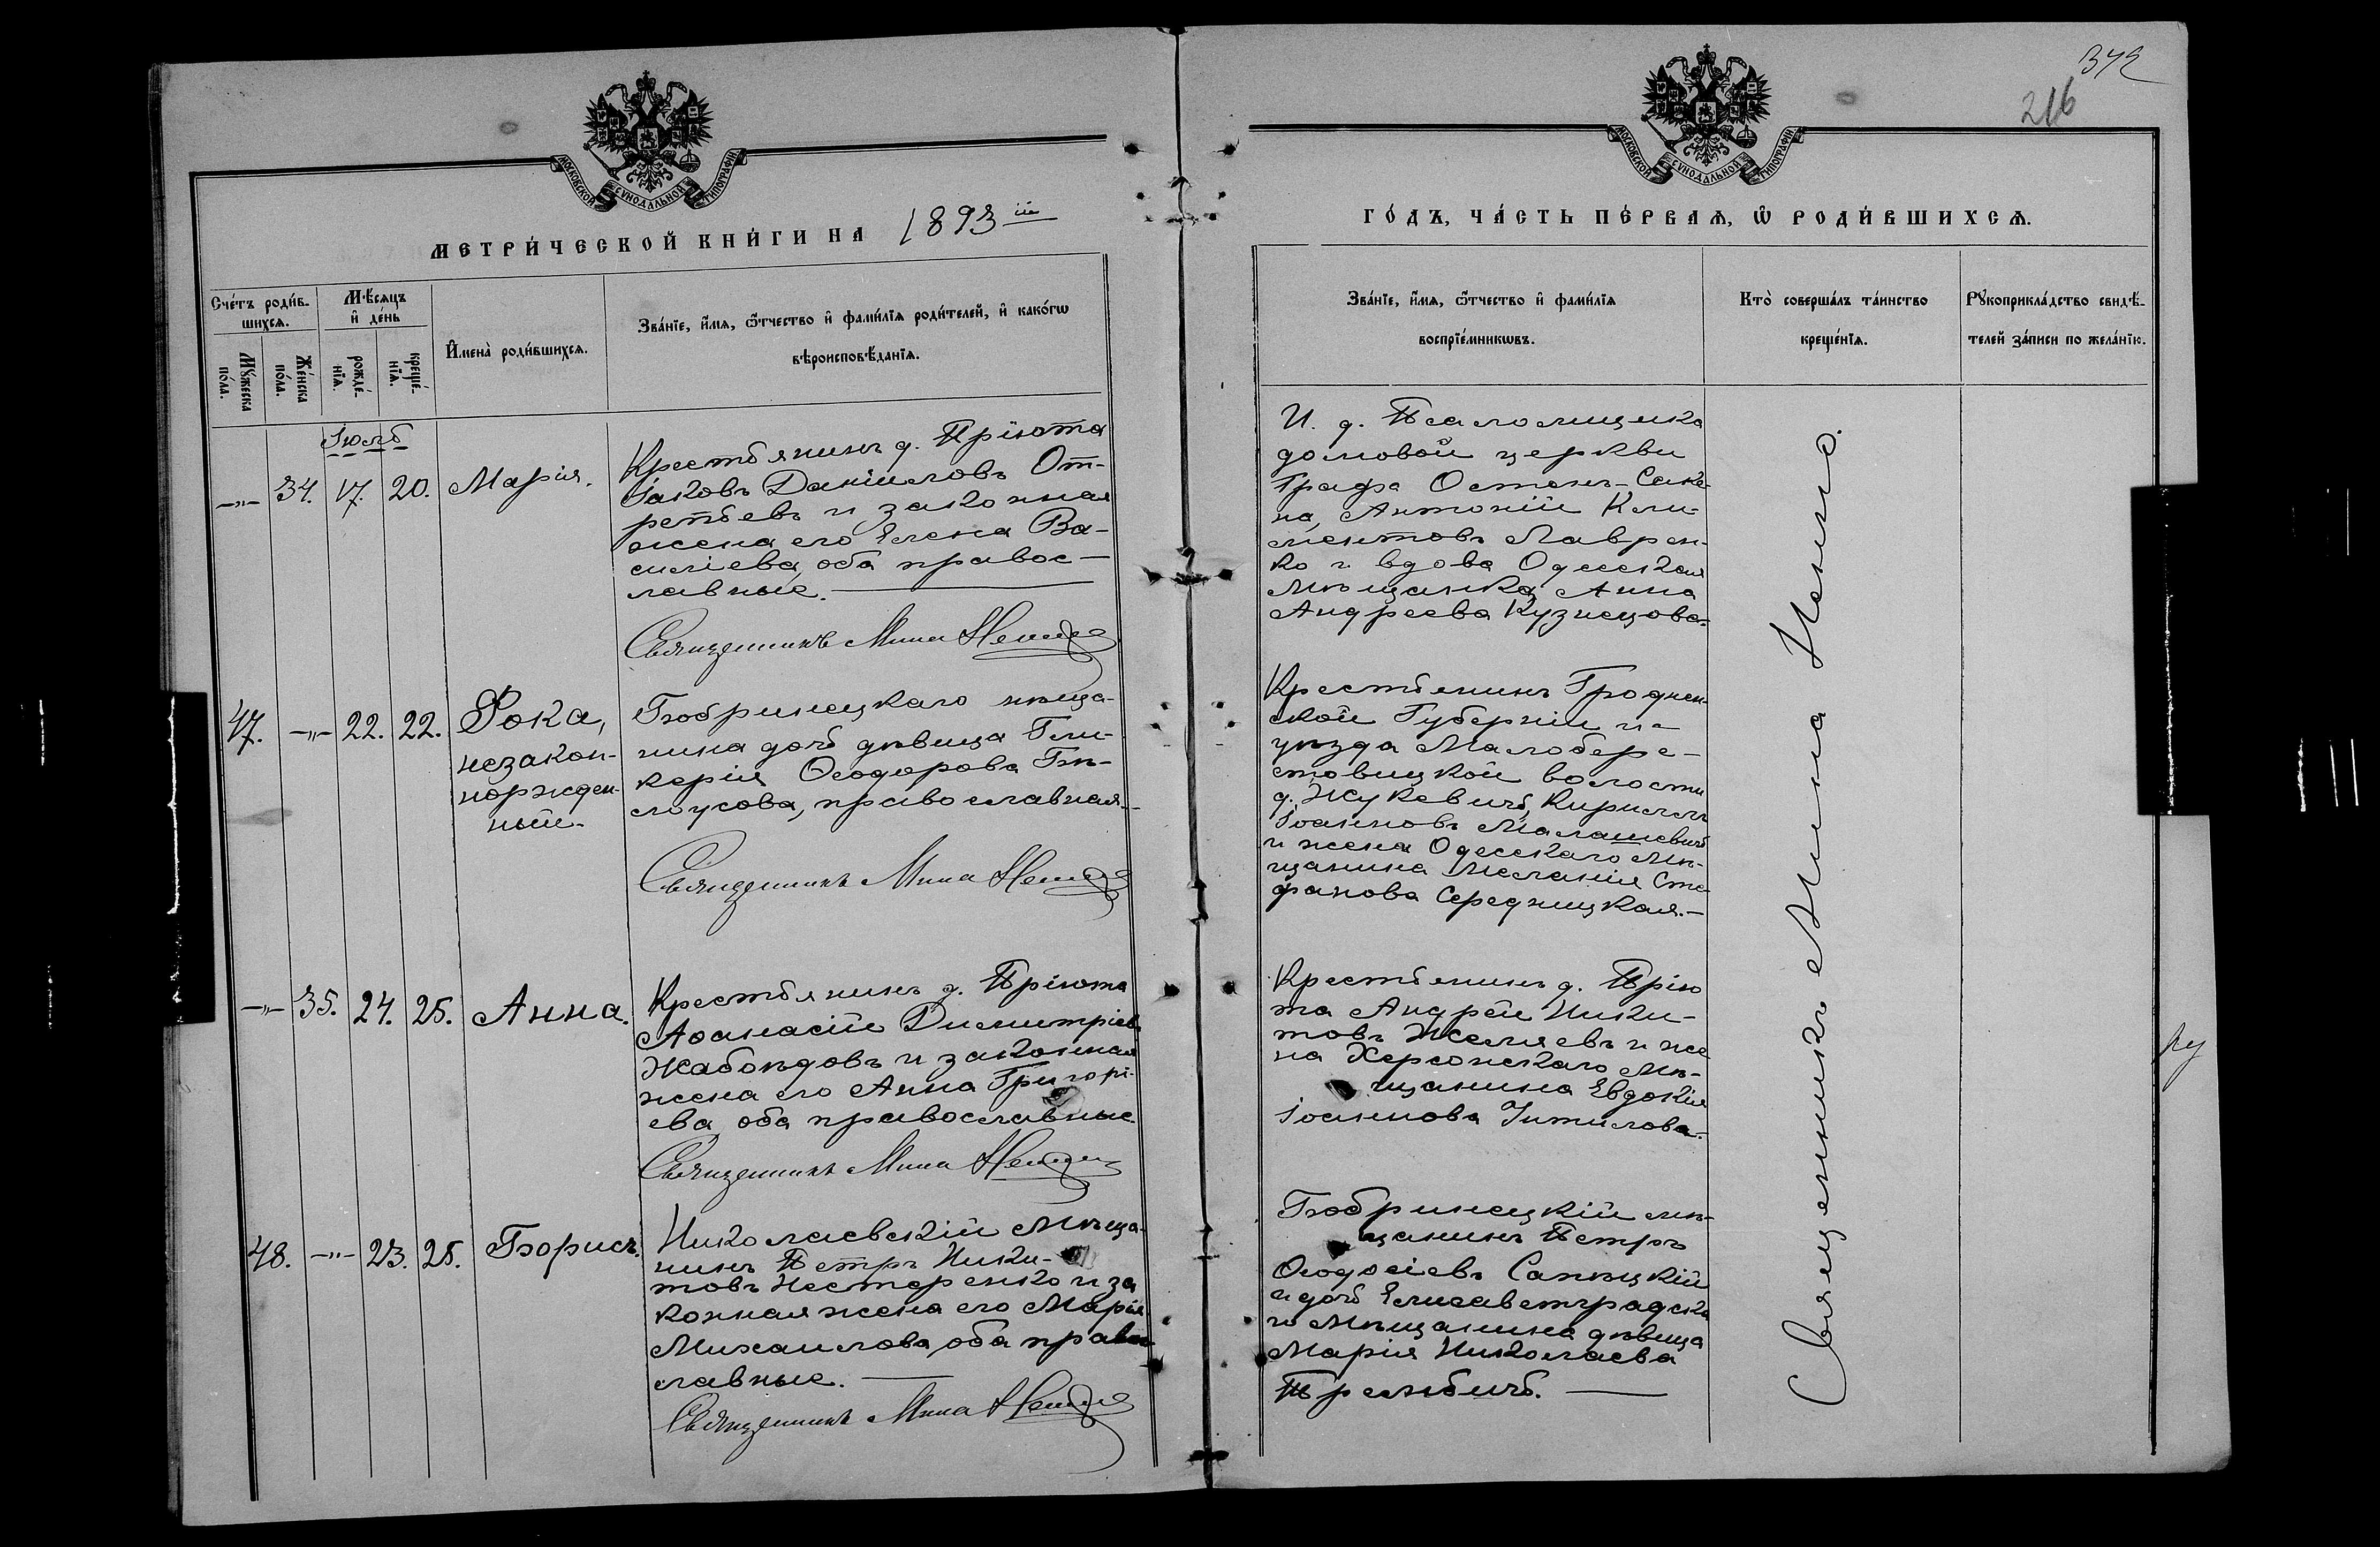 МОСКОВСКОЙ СѴНОДАЛЬНОЙ ТИПОГРАФІИ
МЕТРИ́ЧЕСКОЙ КНИ́ГИ НА 1893 ій
Сче́тъ роди́в-
шихсѧ.
Мꙋ́жеска
по́ла.
Же́нска
по́ла.
Мѣ́сѧцъ
и҆ де́нь
рожде́-
нїѧ.
креще́-
нїѧ.
И҆мена̀ роди́вшихсѧ.
Зва́нїе, и҆́мѧ, ѻ҆́тчество и҆ фами́лїѧ роди́телей, и҆ како́гѡ
вѣроисповѣ́данїѧ.
Іюль
-„- 34. 17. 20. Марія.
Крестьянинъ д. Пріюта
Іаковъ Даніиловъ От-
репьевъ и законная
жена его Елена Ва-
силіева, оба правос-
лавные.
Священникъ Мина
47. -„- 22. 22. Фока,
незакон-
норожден-
ный.
Бобринецкаго мѣща-
нина дочь дѣвица Гли-
керія Ѳеодорова Бѣ-
лоусова, православная.
Священникъ Мина
-„- 35. 24. 25. Анна.
Крестьянинъ д. Пріюта
Аѳанасій Димитріевъ
Жабоѣдовъ и законная
жена его Анна Григорі-
ева, оба православные.
Священникъ Мина
48. -„- 23. 25. Борисъ.
Николаевскій Мѣща-
нинъ Петръ Ники-
товъ Нестеренко и за
конная жена его Марія
Михаилова, оба право-
славные.
Священникъ Мина
342
216
МОСКОВСКОЙ СѴНОДАЛЬНОЙ ТИПОГРАФІИ
ГО́ДЪ, ЧА́СТЬ ПЕ́РВАѦ, Ѡ҆ РОДИ́ВШИХСѦ.
Зва́нїе, и҆́мѧ, ѻ҆́тчество и҆ фами́лїѧ
воспрїе́мникѡвъ.
Кто̀ соверша́лъ та́инство
креще́нїѧ.
Рꙋкоприкла́дство свидѣ́-
телей за́писи по жела́нїю.
И. д. Псаломщика
домовой церкви
Графа Остенъ-Саке-
на, Антоній Кли-
ментовъ Лаврен-
ко и вдова Одесская
Мѣщанка, Анна
Андреева Кузнецова.
Крестьянинъ Гроднен-
ской Губерніи и
уѣзда Малобере-
стовицкой волости
д. Жукевичь, Кириллъ
Іоанновъ Малашевичь
и жена Одесскаго Мѣ-
щанина Меланія Сте-
фанова Середницкая.
Крестьянинъ д. Прію
та Андрей Ники-
товъ Желяевъ и же
на Херсонскаго Мѣ-
щанина Евдокія
Іоаннова
Бобринецкій мѣ-
щанинъ Петръ
Ѳеодосіевъ Сапѣцкій
и дочь Елисаветградска
го Мѣщанина дѣвица
Марія Николаева
Священникъ Мина